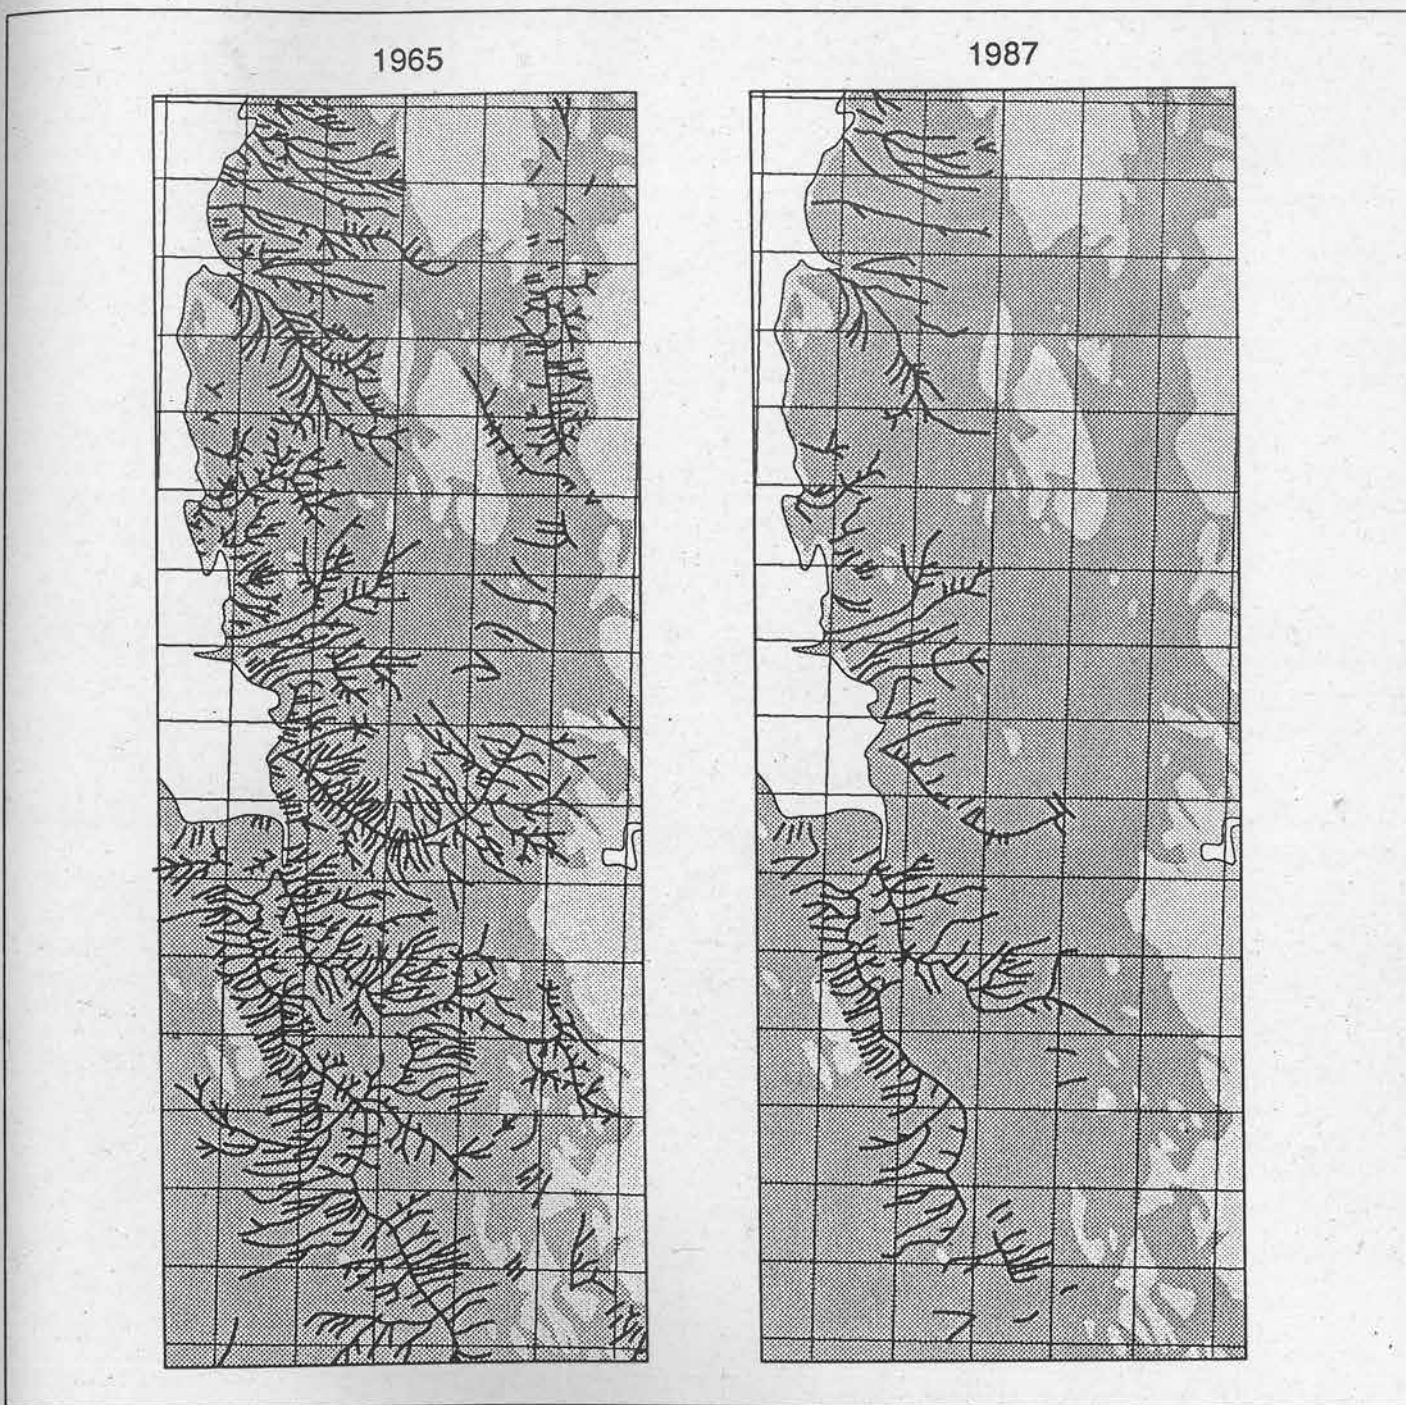 1965
1987